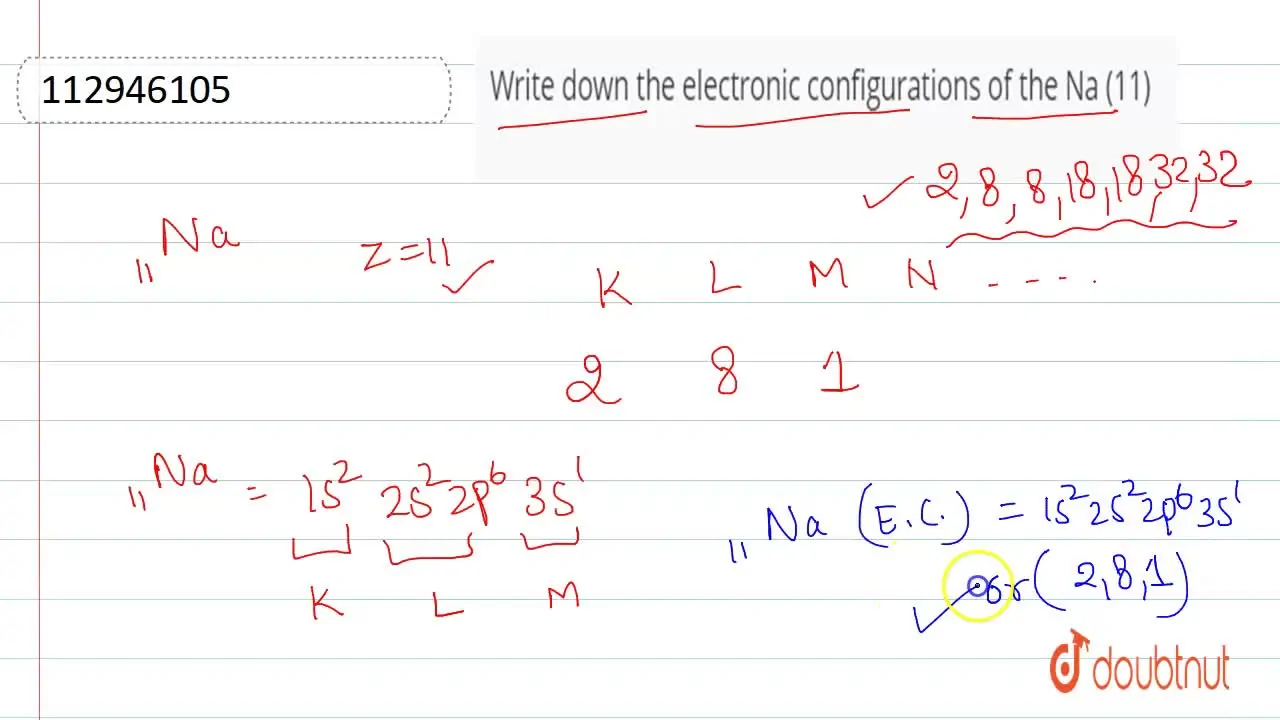 112946105
Write down the electronic configurations of the Na (11)
✓ 2,8,8,18,18,32,32
₁₁Na Z=11 ✓
K L M N - - - - .
2 8 1
₁₁Na = 1s² 2s² 2p⁶ 3s¹
K L M
₁₁Na (E.C.) = 1s² 2s² 2p⁶ 3s¹
✓ or (2,8,1)
doubtnut